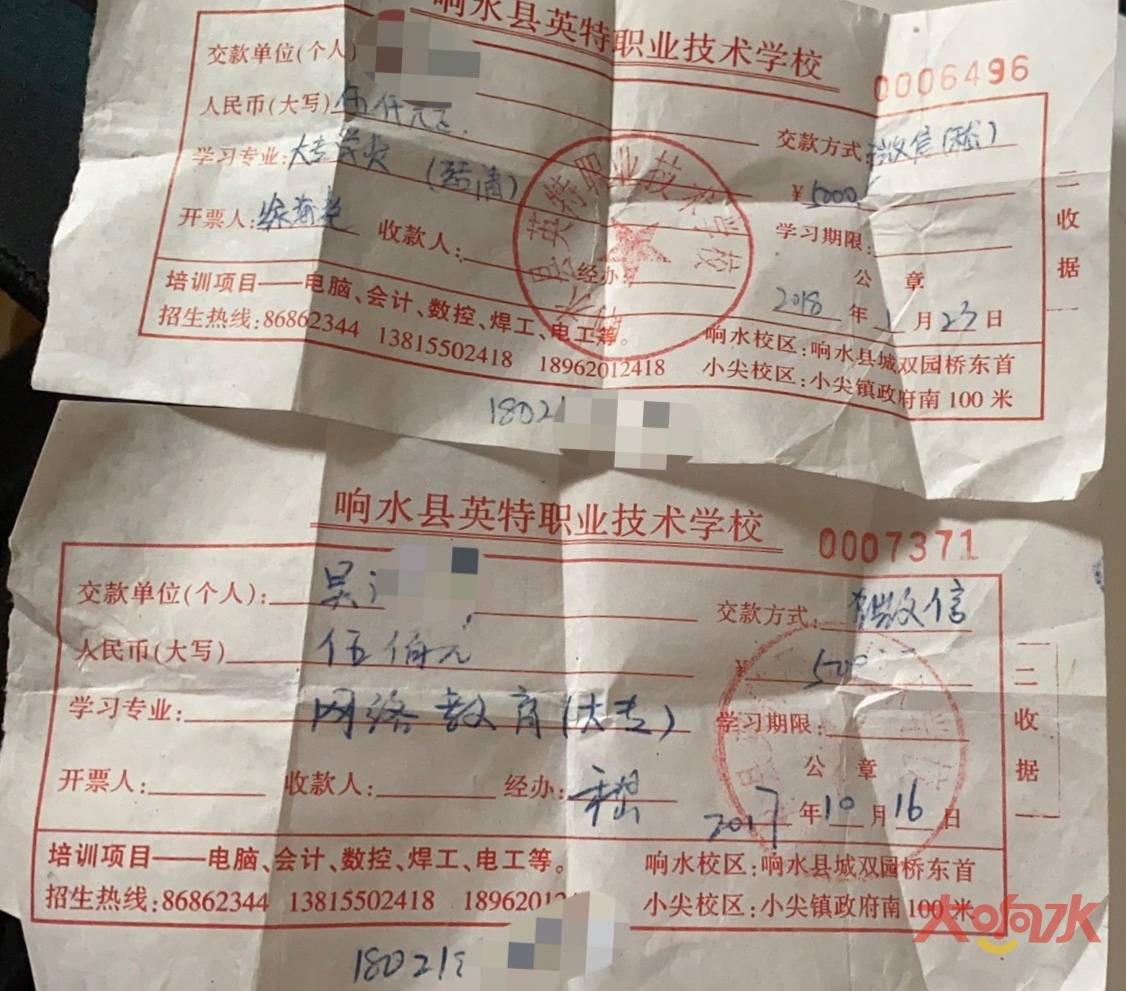 响水县英特职业技术学校
0006496
交款单位(个人)
人民币(大写)伍仟元正. 交款方式:微信
学习专业:大专学费 (结清) ¥5000
开票人: 收款人: 经办: 学习期限:
公 章
2018年1月23日
培训项目——电脑、会计、数控、焊工、电工等。
招生热线:86862344 13815502418 18962012418
响水校区:响水县城双园桥东首
小尖校区:小尖镇政府南100米
二收据
英特职业技术学校
18021
响水县英特职业技术学校
0007371
交款单位(个人):吴 交款方式:微信
人民币(大写)伍佰元 ¥500
学习专业:网络教育(大专) 学习期限:
公 章
开票人: 收款人: 经办: 2017年10月16日
培训项目——电脑、会计、数控、焊工、电工等。
招生热线:86862344 13815502418 1896201
响水校区:响水县城双园桥东首
小尖校区:小尖镇政府南100米
二收据
18021
大响水